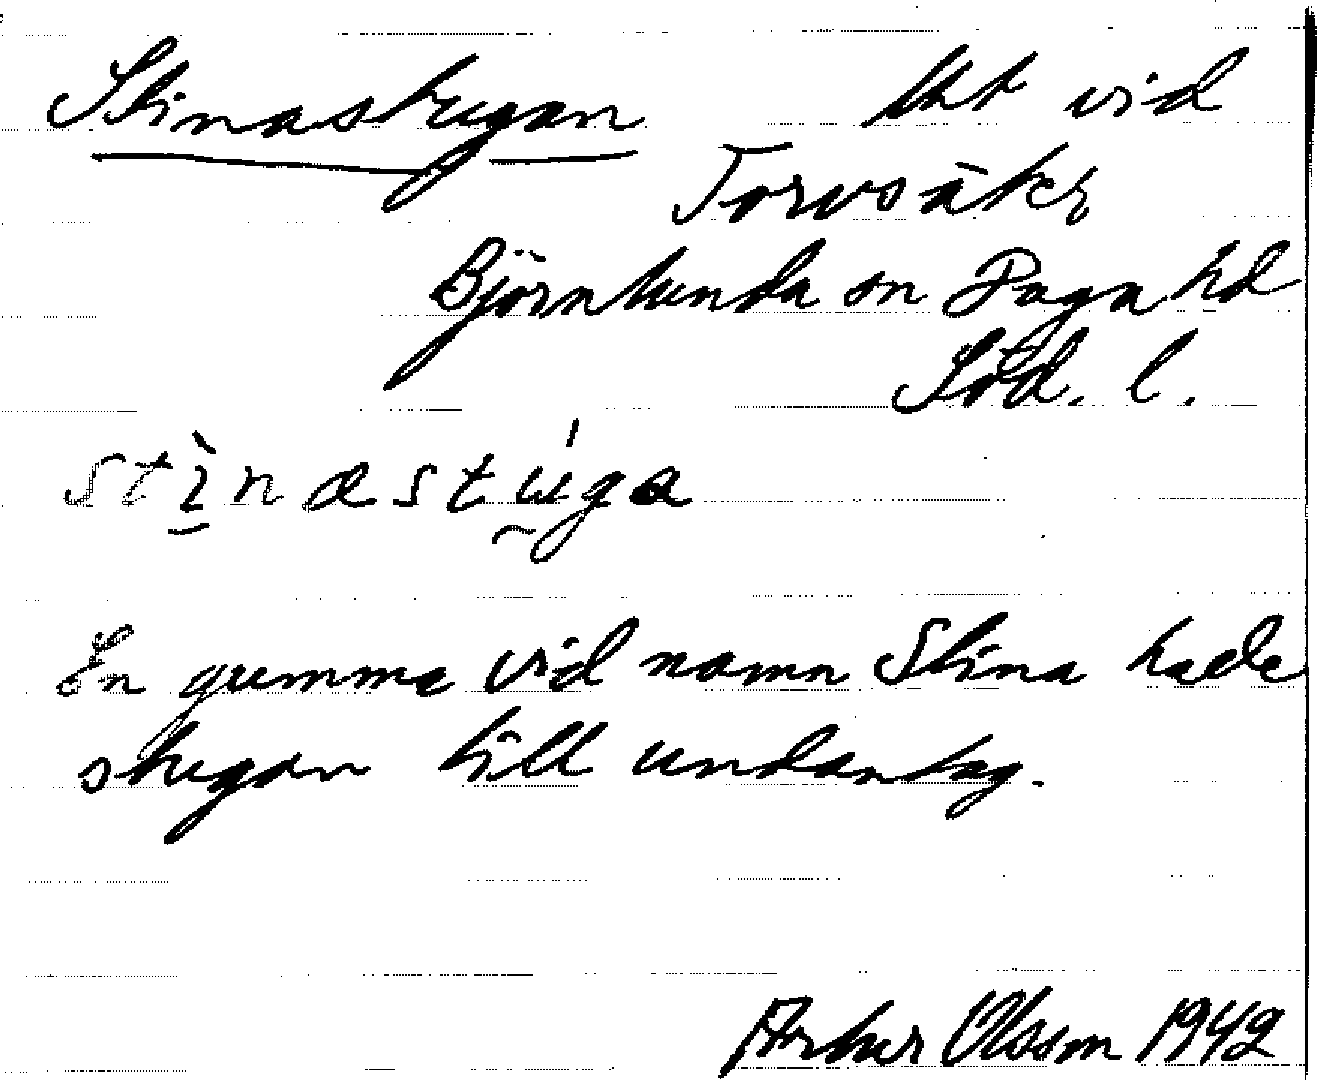 Stinastugan lht vid
Torvsåker
Björnlunda sn Daga hd
Söd. l.
stìnastúga
En gumma vid namn Stina hade
stugan till undantag.
Arthur Olsson 1942